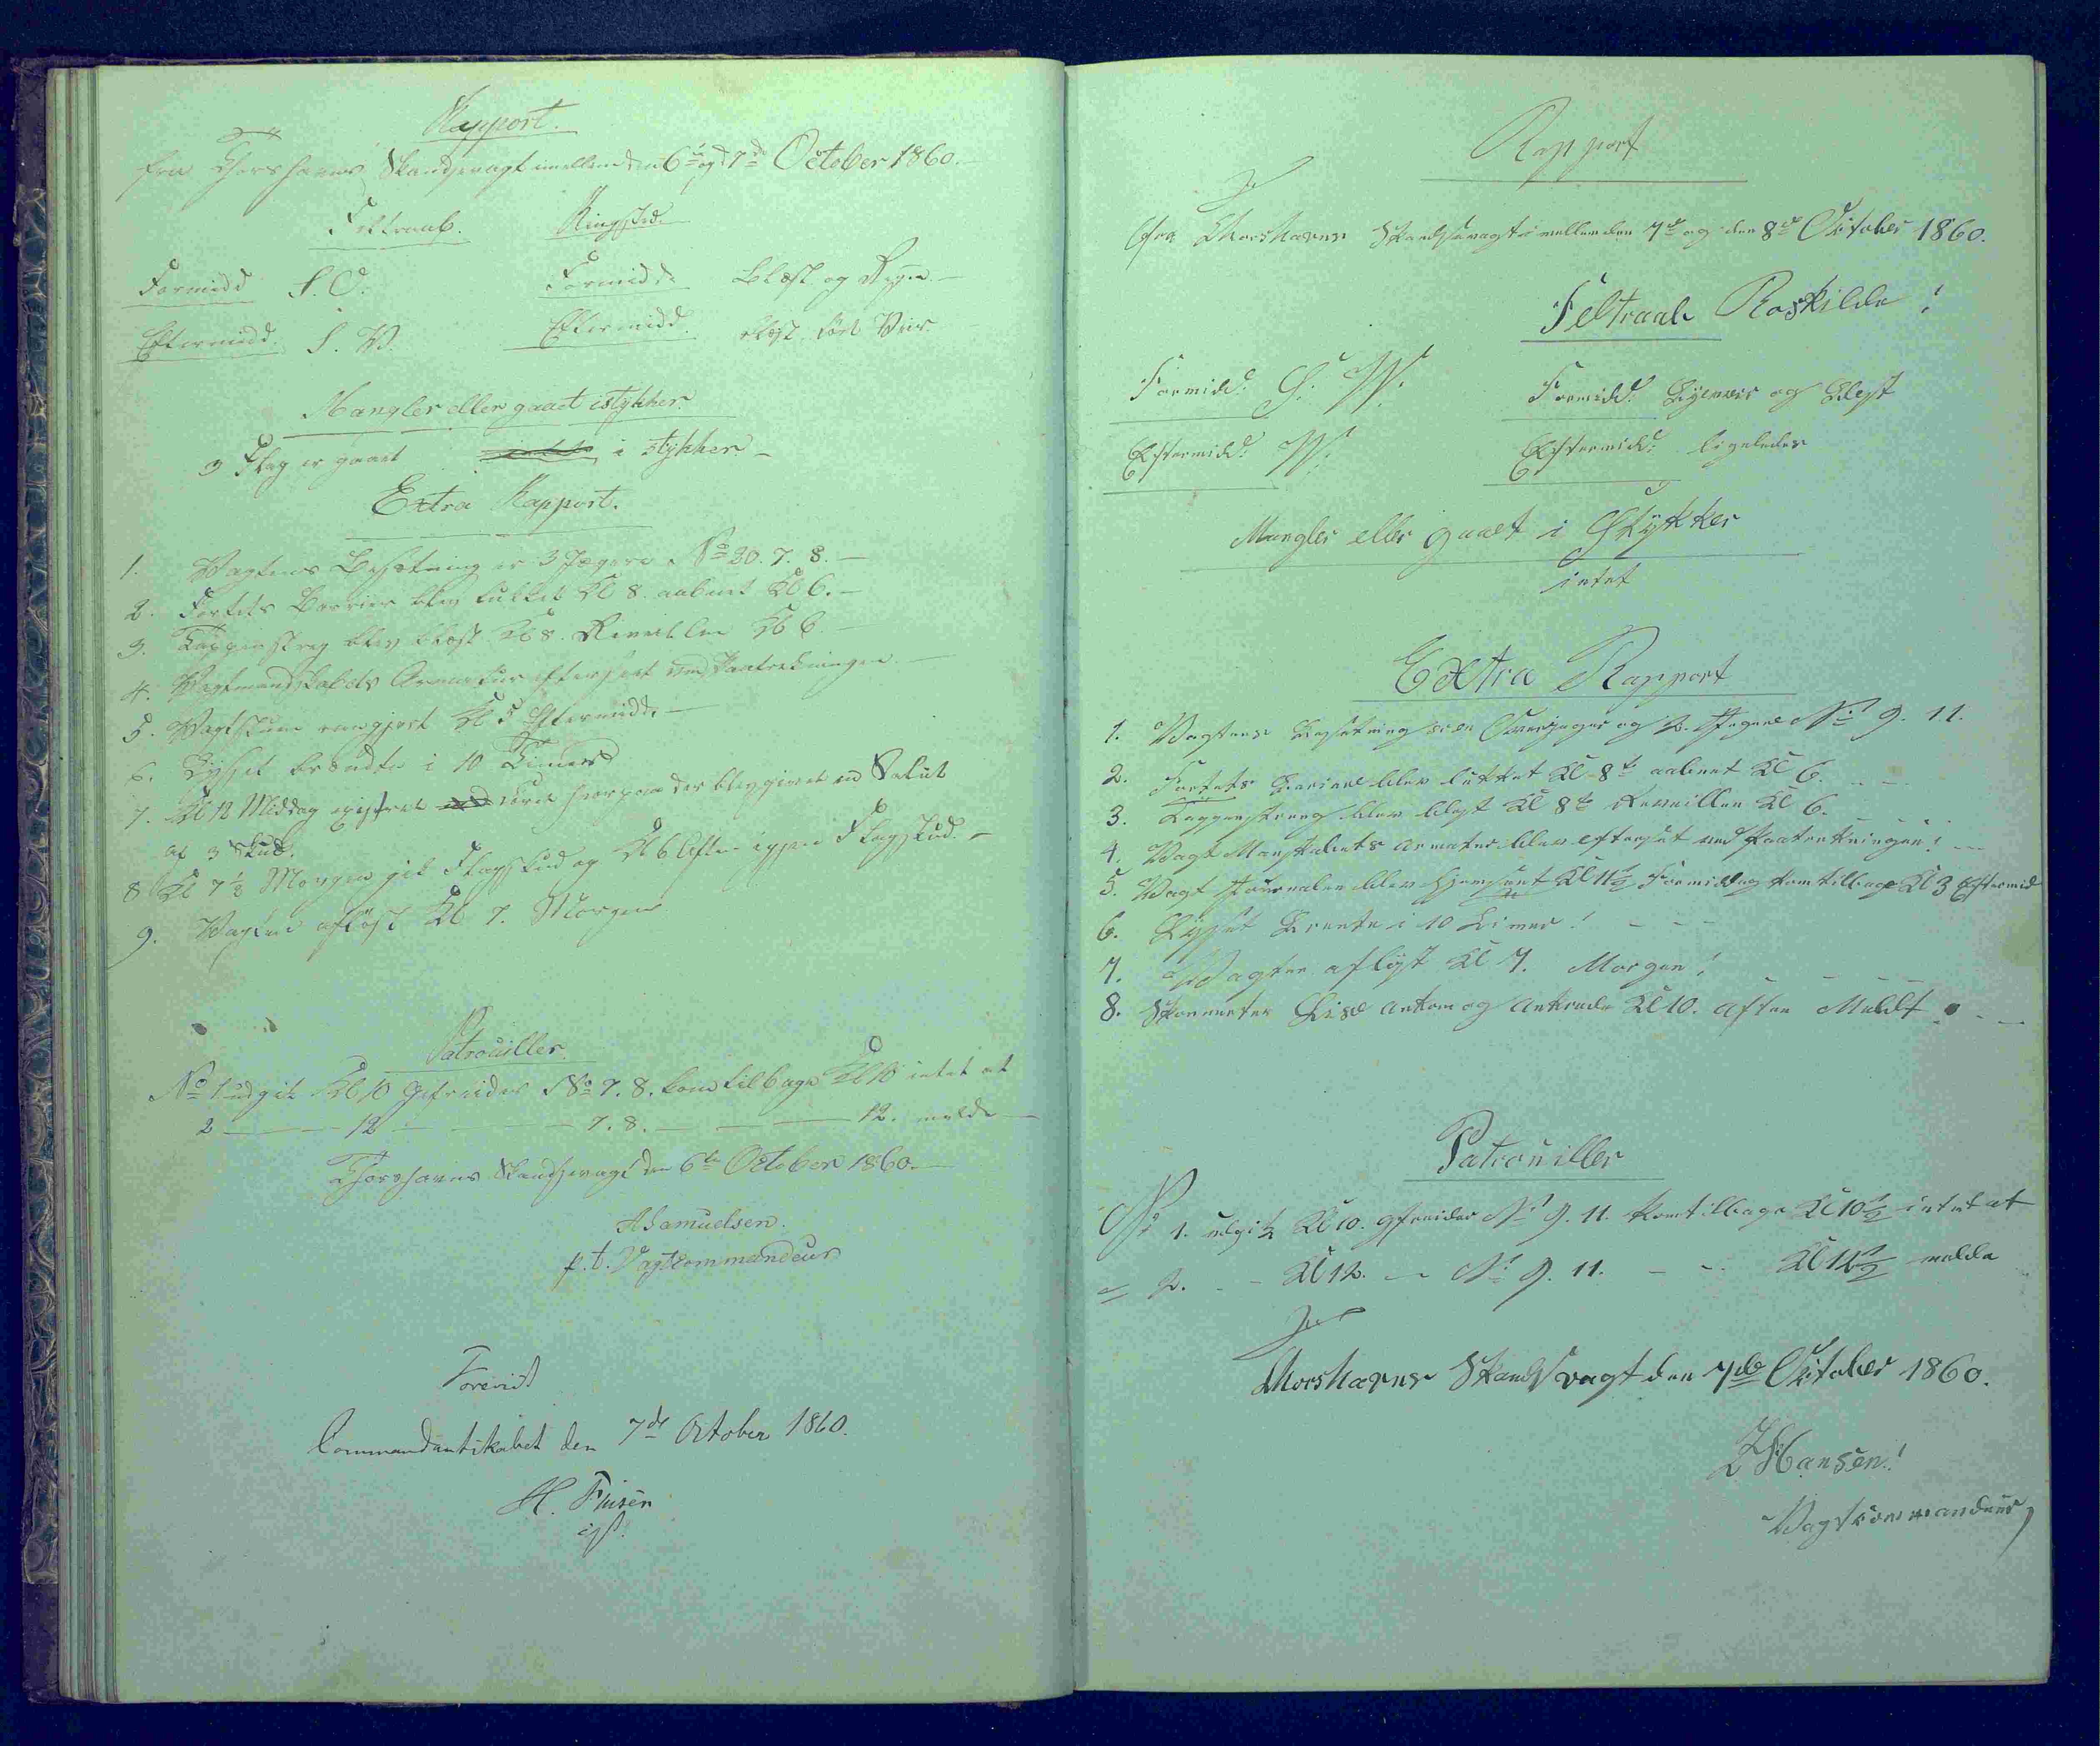 Rapport.
fra Thorshavns Skandsevagt imellem den 6te og 7de October 1860.
Feltraab. Ringsted.
Formidd S.O. Formidd: Blæst og Regn.
Eftermidd. S.V. Eftermidd. blæst
Mangler eller gaaet istÿkker.
3 Flag er gaaet i stÿkker.
Extra Rapport.
1. Vagtens Besætning er 3 Jægere No 20. 7. 8.
2. Fortets Barrier blev lukket Kl 8. aabnet Kl 6.
3. Tappenstreg blev blæst Kl 8. Reveillen Kl 6.
4. Vagtmandskabets Armatur efterseet ved Paatrækningen.
5. Vagtstuen rengjort Kl 5 Eftermidd.
6. Lyset brændte i 10 Timer
7. Kl 12 Middag der blev givet en Salut
af 3 Skud.
8 Kl 7½ Morgen gik Flagskud og Kl 6 Aften igjen Flagskud.
9. Vagten afløst Kl 7. Morgen
Patrouiller
No 1 udgik Kl 10 Gefreider No 7. 8. kom tilbage Kl 10 intet at
2 — 12 — 7. 8. — 12. melde
Thorshavns Skandsevagt den 6te October 1860.
A Samuelsen.
p.t. Vagtcommandeur
Foreviist
Commandantskabet den 7de October 1860.
H. Finsen
cst.
Rapport
fra Thorshavns Skandsevagt imellem den 7de og den 8de October 1860.
Feltraab Roskilde!
Formidd: S. W. Formidd: Byeveir og Blæst
Eftermidd: W. Eftermidd: ligeledes
Mangler eller gaaet i Stÿkker
intet
Extra Rapport
1. Vagtens Besætning er en Overjæger og 2. Jægere No 9. 11.
2. Fortets Bariere blev lukket Kl 8te aabnet Kl 6.
3. Tappenstreg blev blæst Kl 8te Reveillen Kl 6.
4. Vagt Manskabets Armatur blev efterset ved Paatrækningen!
5. Vagt Journalen blev hjemsent Kl 11½ Formiddag kom tilbage Kl 3 Eftermid
6. Lyset Brente i 10 Timer!
7. Vagten afløst Kl 7. Morgen!
8. Skonnerten ankom og ankrede Kl 10. aften Meldt
Patrouiller
No 1. udgik Kl 10. gefreider No 9. 11. kom tilbage Kl 10½ intet at
" 2. - Kl 12. - No 9. 11. - - Kl 12½ melde
Thorshavns Skandsvagt den 7de October 1860.
Hansen!
Vagtcommandeur